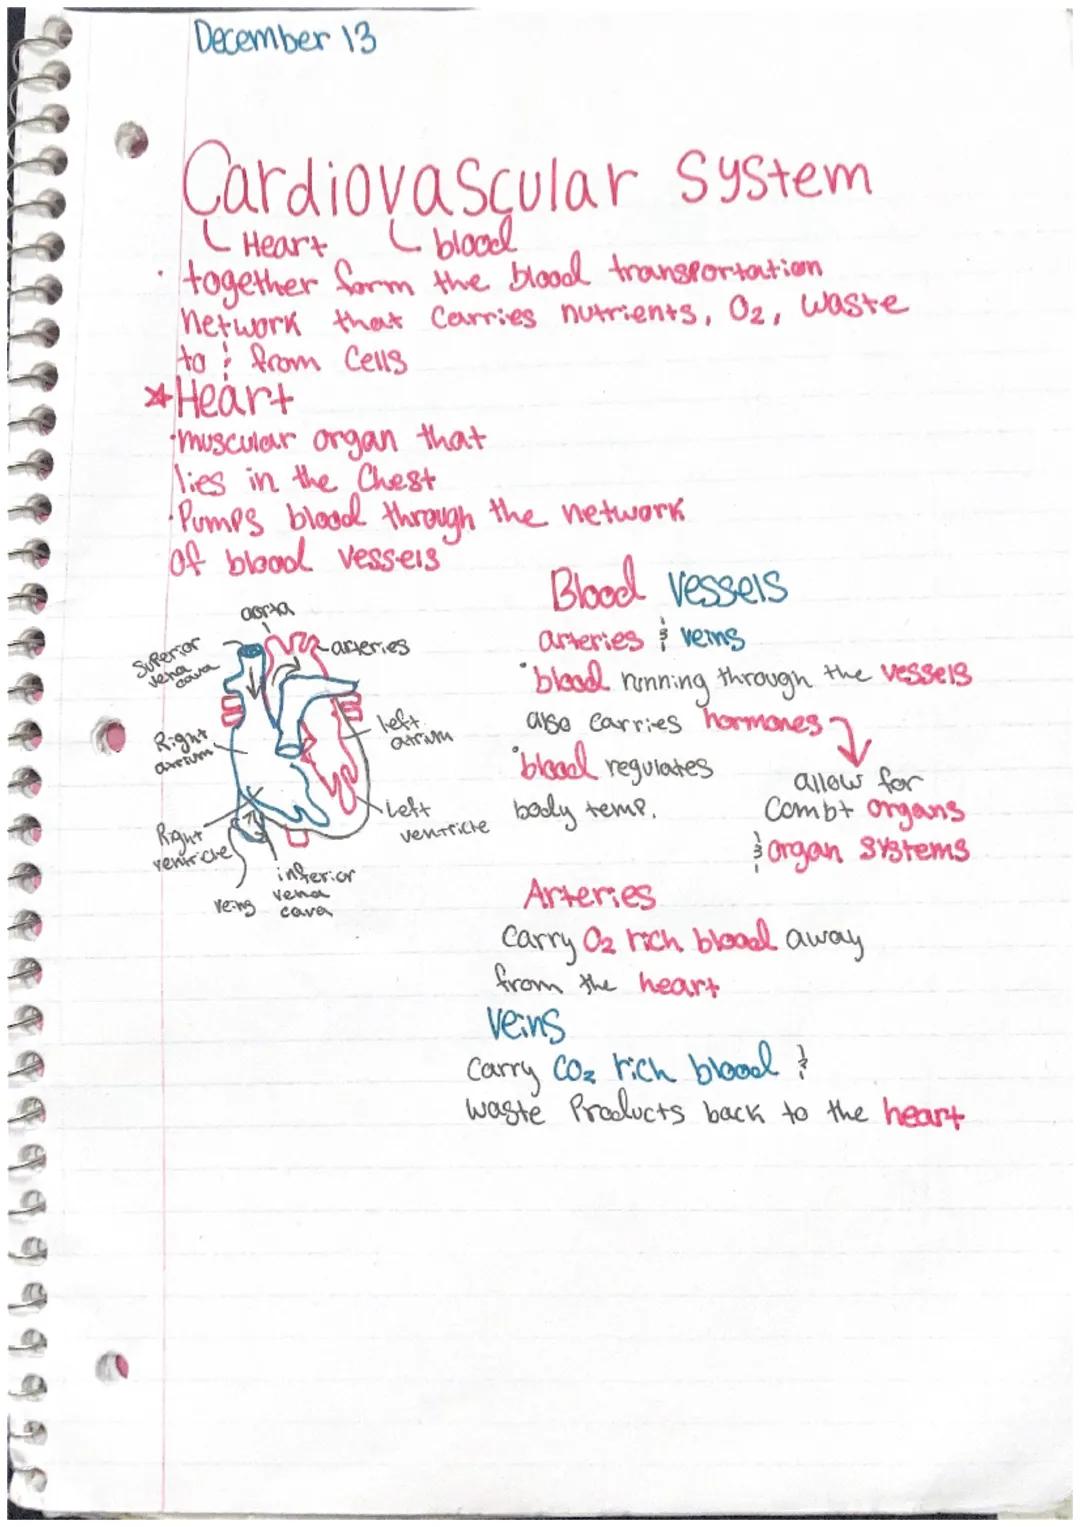 December 13
Cardiovascular System
Heart blood
· together form the blood transportation
network that carries nutrients, O2, waste
to & from Cells
*Heart
·muscular organ that
lies in the Chest
·Pumps blood through the network
of blood vessels
aorta
arteries
Superior
vena
cava
Right
atrium
left
atrium
Left
ventricle
Right
ventricle
inferior
vena
cava
veins
Blood Vessels
arteries & veins
·blood running through the vessels
also carries hormones
·blood regulates
body temp.
allow for
Comb+ organs
& organ systems
Arteries
Carry O2 rich blood away
from the heart
Veins
Carry CO2 rich blood &
waste Products back to the heart